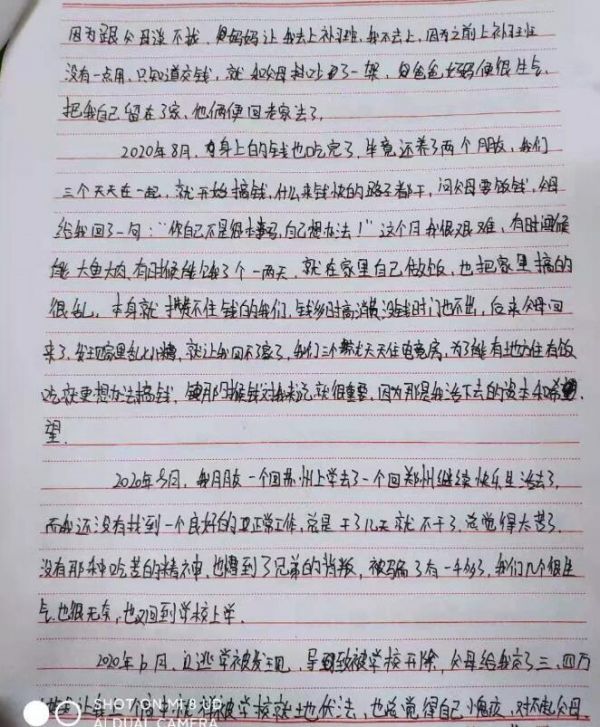 因为跟父母谈不拢,我妈妈让我去上补习班,我不去上,因为之前上补习班
没有一点用,只知道交钱,就和父母吵了一架,爸爸妈妈便很生气,
把我自己留在了家,他俩便回老家去了。
2020年8月,身上的钱也吃完了,毕竟还养了两个朋友,我们
三个天天在一起,就开始搞钱,什么来钱快的路子都干,问父母要饭钱,父母
给我回了一句:“你自己不是很本事吗,自己想办法!”这个月我很艰难,有时候
能大鱼大肉,有时候能饿个一两天,就在家里自己做饭,也把家里搞的
很乱,本身就攒不住钱的我们,钱多时高消费,没钱时门也不出,后来父母回
来了,发现家里乱七八糟,就让我回不了家了,我们三个就天天住电竞房,为了能有地方住有饭
吃就更想办法搞钱,那时候钱对我来说就很重要,因为那是我活下去的资本和希
望.
2020年9月,我朋友一个回苏州上学去了一个回郑州继续快乐生活去了,
而我还没有找到一个良好的正常工作,总是干了几天就不干了,总觉得太苦了,
没有那种吃苦的精神,也遭到了兄弟的背叛,被骗了有一千多,我们几个很生
气,也很无奈,也又回到学校上学.
2020年10月,逃学被发现,导致被学校开除,父母给我交了三、四万
被学校就地伏法,也总觉得自己,对不起父母,
SHOT ON MI 8 UD
AI DUAL CAMERA